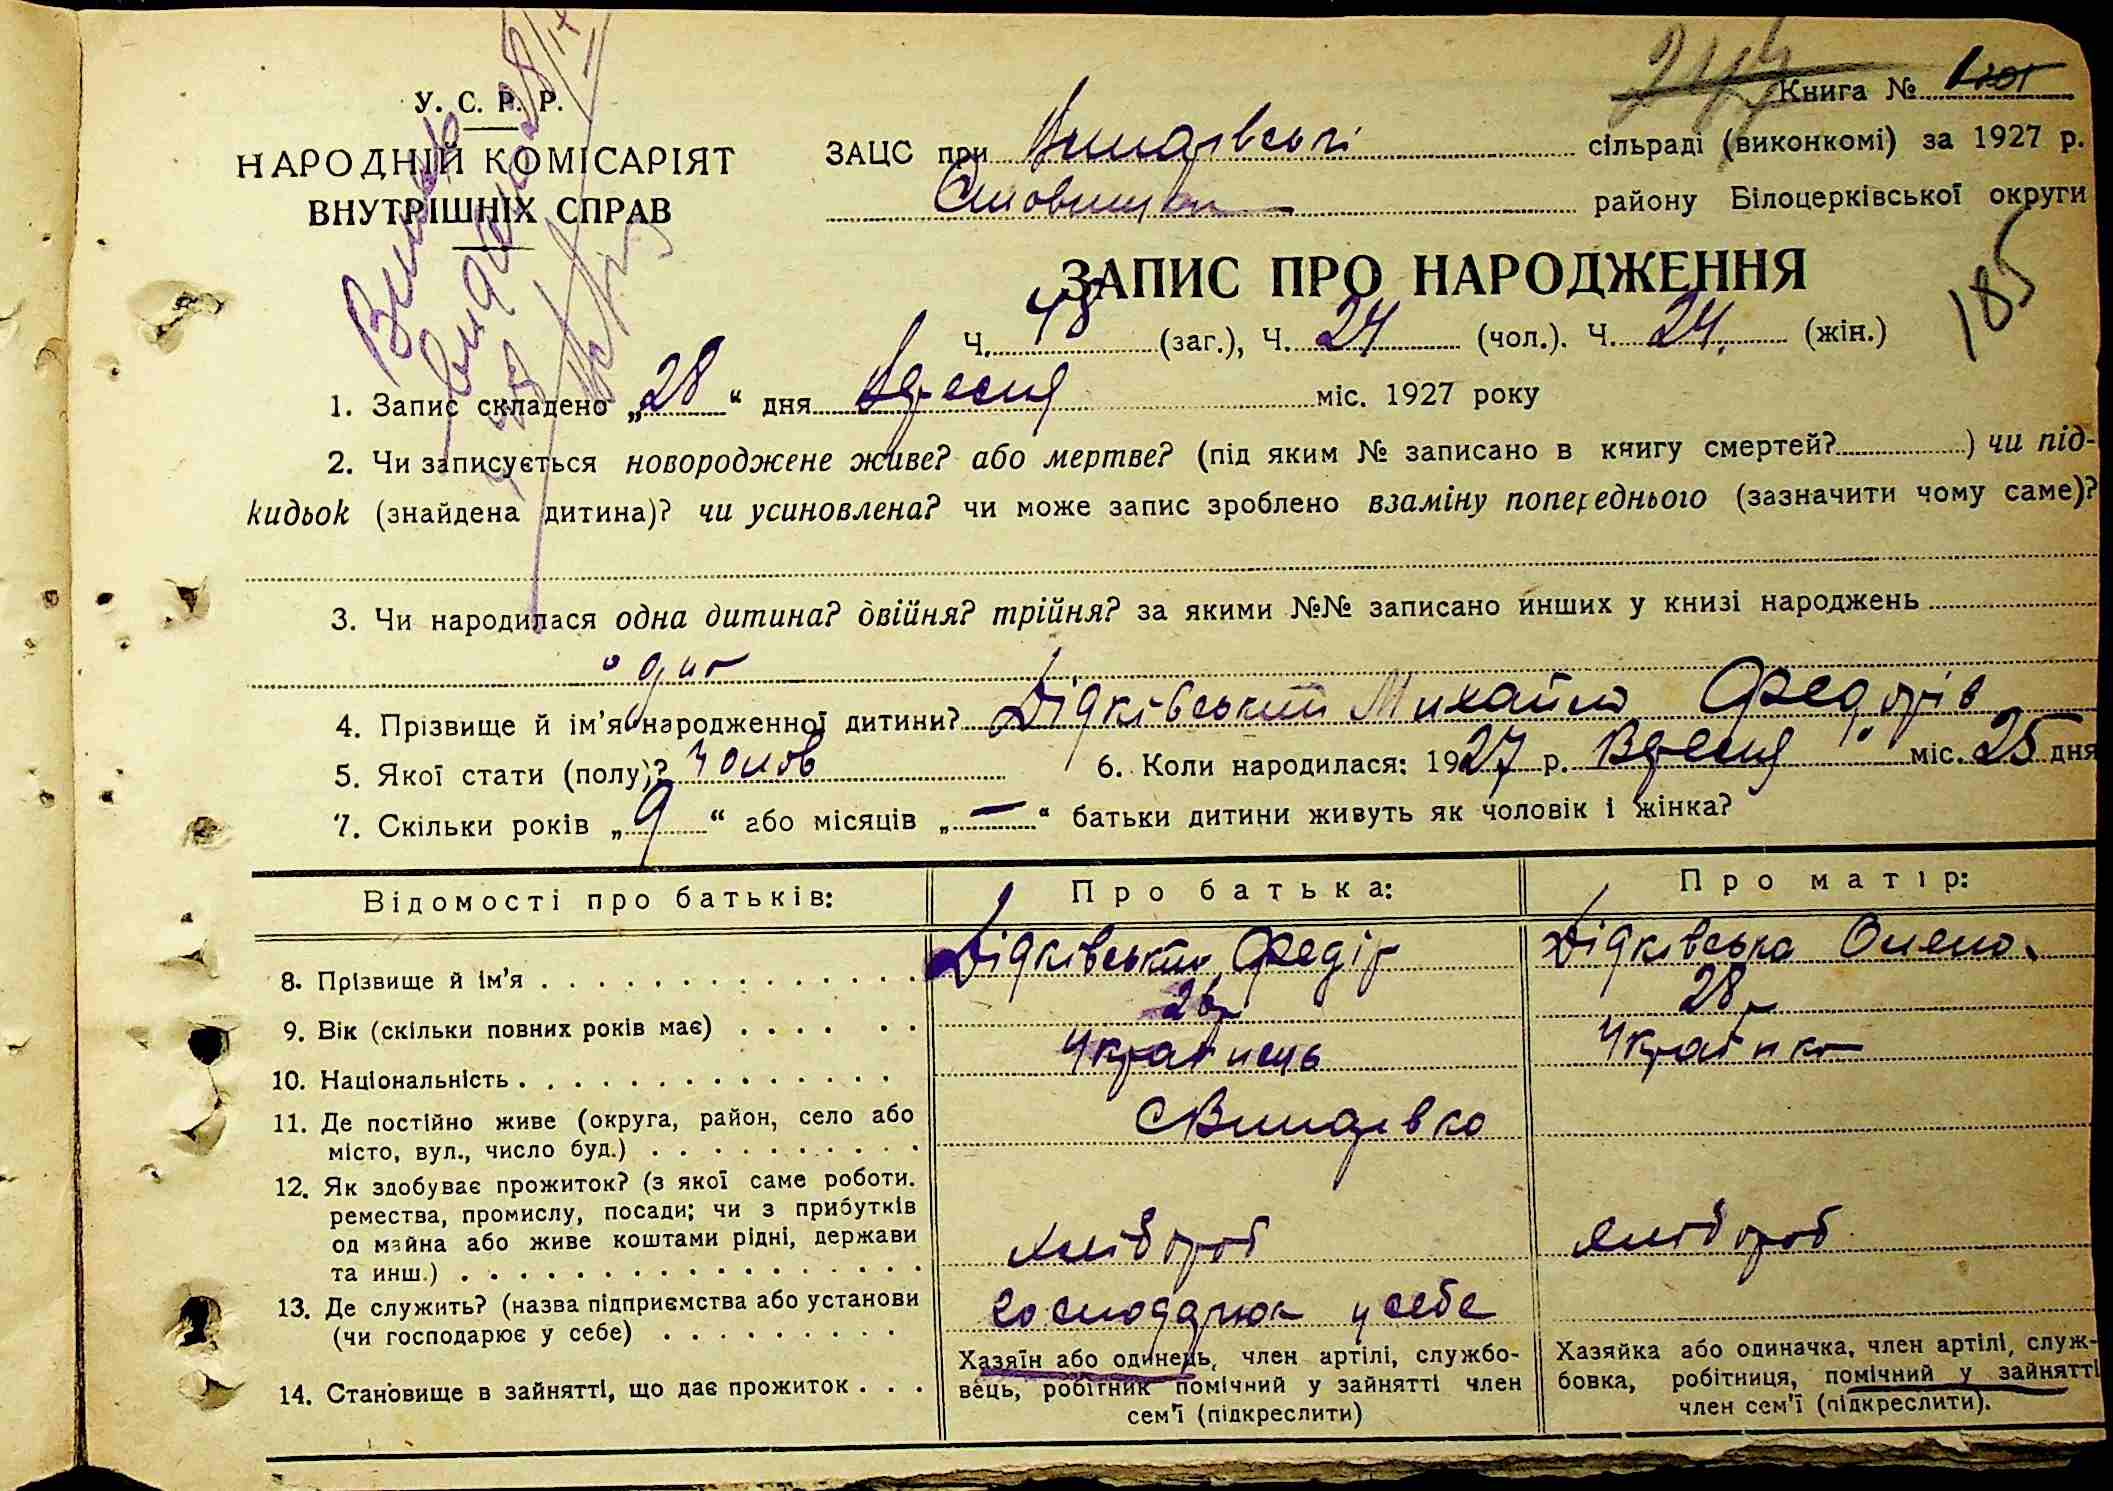 У. С. Р. Р.
НАРОДНІЙ КОМІСАРІЯТ
ВНУТРІШНІХ СПРАВ
28/IX
247 Книга №
ЗАЦС при сільраді (виконкомі) за 1927 р.
району Білоцерківської округи
ЗАПИС ПРО НАРОДЖЕННЯ
185
Ч. 48 (заг.), Ч. 24 (чол.). Ч. 24. (жін.)
1. Запис складено „28“ дня Вересня міс. 1927 року
2. Чи записується новороджене живе? або мертве? (під яким № записано в книгу смертей?) чи під-
кидьок (знайдена дитина)? чи усиновлена? чи може запис зроблено взаміну попереднього (зазначити чому саме)?
3. Чи народилася одна дитина? двійня? трійня? за якими №№ записано инших у книзі народжень
один
4. Прізвище й ім'я народженної дитини? Дідківський Михайло Федорів
5. Якої стати (полу)? чолов 6. Коли народилася: 1927 р. Вересня міс. 25 дня
7. Скільки років „9“ або місяців „—“ батьки дитини живуть як чоловік і жінка?
Відомості про батьків: Про батька: Про матір:
8. Прізвище й ім'я Дідківський Федір Дідківська Олена
9. Вік (скільки повних років має) 26 р 28 р
10. Національність Українець Українка
11. Де постійно живе (округа, район, село або
місто, вул., число буд.)
12. Як здобуває прожиток? (з якої саме роботи.
ремества, промислу, посади; чи з прибутків
од майна або живе коштами рідні, держави
та инш.) хлібороб хлібороб
13. Де служить? (назва підприємства або установи
(чи господарює у себе) господарює у себе
14. Становище в зайнятті, що дає прожиток
Хазяїн або одинець, член артілі, службо-
вець, робітник помічний у зайнятті член
сем'ї (підкреслити)
Хазяйка або одиначка, член артілі, служ-
бовка, робітниця, помічний у зайнятті
член сем'ї (підкреслити).